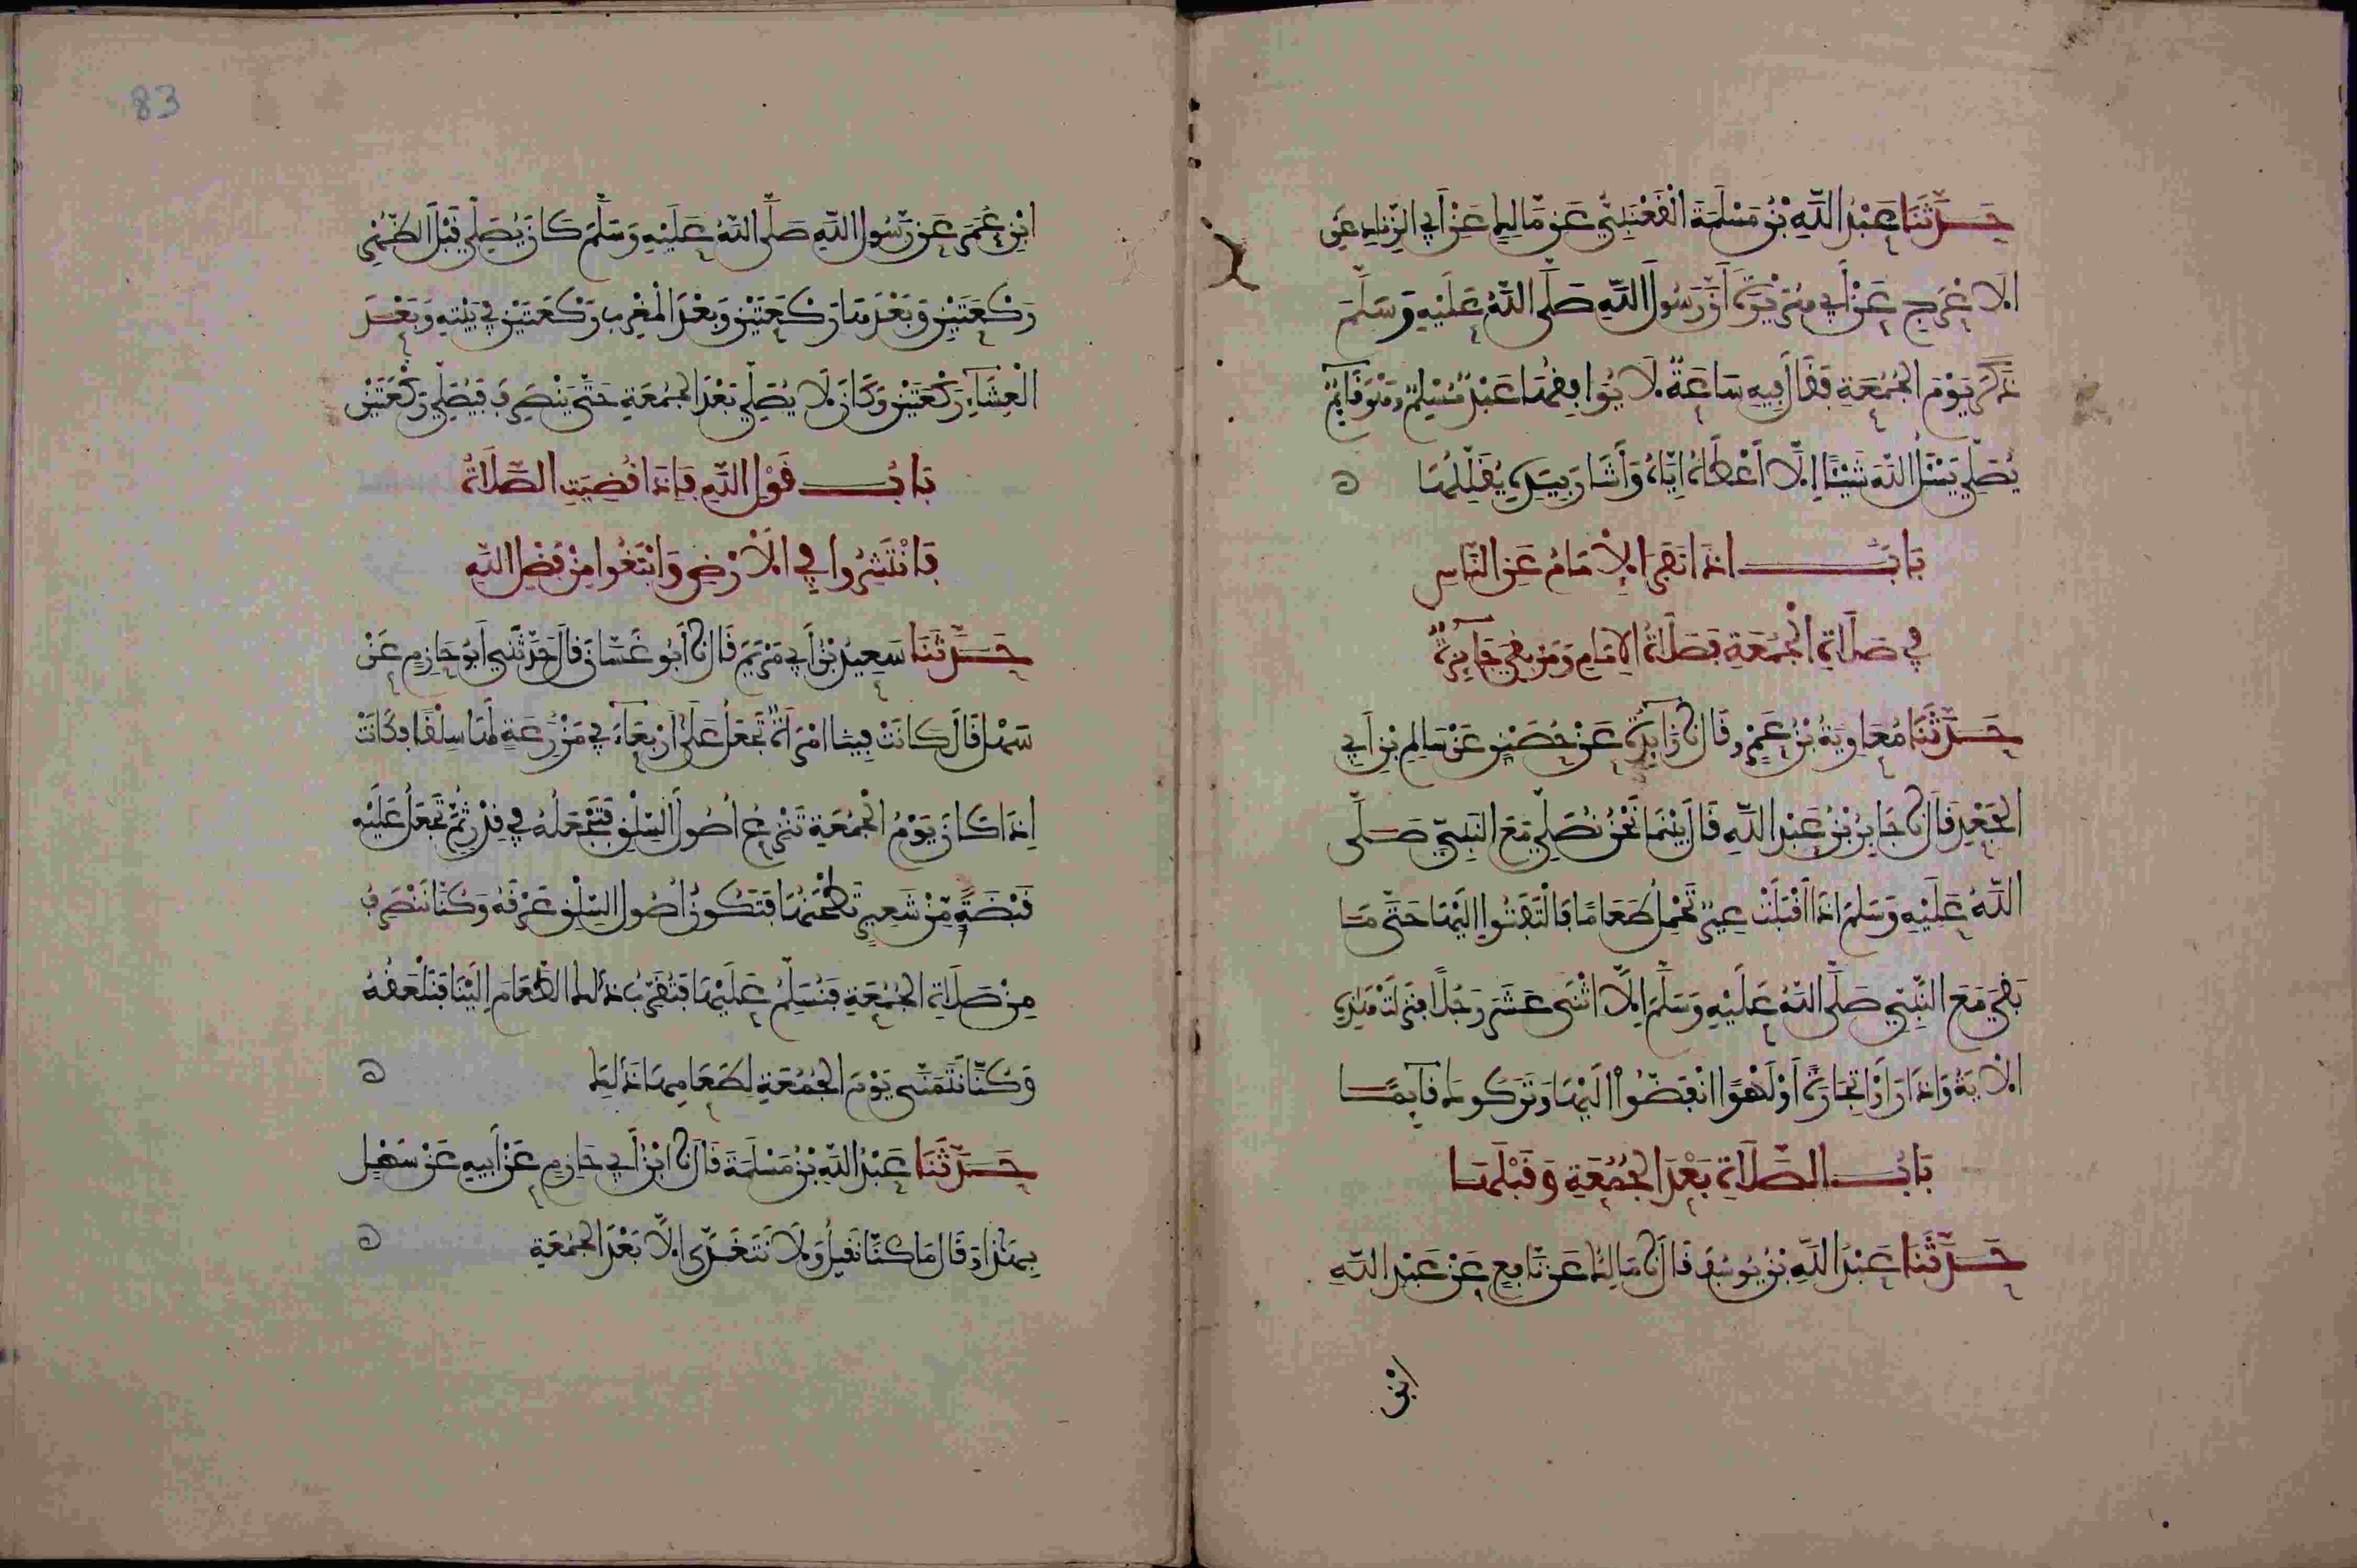 حَدَّثَنَا عَبْدُ اللَّهِ بْنُ مَسْلَمَةَ الْقَعْنَبِيُّ عَن مَّالِكٍ عَنْ أَبِي الزِّنَادِ عَنِ
الَاعْرَجِ عَنْ أَبِي هُرَيْرَةَ أَنَّ رَسُولَ اللَّهِ صَلَّى اللَّهُ عَلَيْهِ وَسَلَّمَ
ذَكَرَ يَوْمَ الْجُمُعَةِ فَقَالَ فِيهِ سَاعَةٌ لَا يُوَافِقُهَا عَبْدٌ مُّسْلِمٌ وَهْوَ قَآئِمٌ
يُصَلِّي يَسْئَلُ اللَّهَ شَيْئًا اِلَّا أَعْطَاهُ اِيَّاهُ وَأَشَارَ بِيَدِهِ يُقَلِّلُهَا
بَابٌ اذَا نَفَرَ الْامَامُ عَنِ النَّاسِ
فِي صَلَاةِ الْجُمُعَةِ فَصَلَاةُ الِامَامِ وَمَن بَقِيَ جَآئِزَةٌ
حَدَّثَنَا مُعَاوِيَةُ بْنُ عَمْرٍو قَالَ نَا زَآئِدَةُ عَنْ حُصَيْنٍ عَنْ سَالِمِ بْنِ أَبِي
الْجَعْدِ قَالَ نَا جَابِرُ بْنُ عَبْدِ اللَّهِ قَالَ بَيْنَمَا نَحْنُ نُصَلِّي مَعَ النَّبِيِّ صَلَّى
اللَّهُ عَلَيْهِ وَسَلَّمَ اذَا أَقْبَلَتْ عِيرٌ تَحْمِلُ طَعَامًا فَالْتَفَتُوا اِلَيْهَا حَتَّى مَا
بَقِيَ مَعَ النَّبِيِّ صَلَّى اللَّهُ عَلَيْهِ وَسَلَّمَ اِلَّا اثْنَى عَشَرَ رَجُلًا فَنَزَلَتْ هَذِهِ
الْايَةُ وَاذَا رَأَوْا تِجَارَةً أَوْ لَهْوًا انْفَضُّوْا الَيْهَا وَتَرَكُوكَ قَآئِمًا
بَابُ الصَّلَاةِ بَعْدَ الْجُمُعَةِ وَقَبْلَهَا
حَدَّثَنَا عَبْدُ اللَّهِ بْنُ يُوسُفَ قَالَ نَا مَالِكٌ عَن نَّافِعٍ عَنْ عَبْدِ اللَّهِ
ابْنِ
83
ابْنِ عُمَرَ عَن رَّسُولِ اللَّهِ صَلَّى اللَّهُ عَلَيْهِ وَسَلَّمَ كَانَ يُصَلِّي قَبْلَ الظُّهْرِ
رَكْعَتَيْنِ وَبَعْدَهَا رَكْعَتَيْنِ وَبَعْدَ الْمَغْرِبِ رَكْعَتَيْنِ فِي بَيْتِهِ وَبَعْدَ
الْعِشَآءِ رَكْعَتَيْنِ وَكَانَ لَا يُصَلِّي بَعْدَ الْجُمُعَةِ حَتَّى يَنْصَرِفَ فَيُصَلِّي رَكْعَتَيْنِ
بَابُ قَوْلِ اللَّهِ فَإِذَا قُضِيَتِ الصَّلَاةُ
فَانْتَشِرُوا فِي الَارْضِ وَابْتَغُوا مِنْ فَضْلِ اللَّهِ
حَدَّثَنَا سَعِيدُ بْنُ أَبِي مَرْيَمَ قَالَ نَا أَبُو غَسَّانَ قَالَ حَدَّثَنِي أَبُو حَازِمٍ عَنْ
سَهْلٍ قَالَ كَانَتْ فِينَا امْرَأَةٌ تَجْعَلُ عَلَى أَرْبِعَآءَ فِي مَزْرَعَةٍ لَهَا سِلْقًا وَكَانَتْ
اِذَا كَانَ يَوْمُ الْجُمُعَةِ تَنْزِعُ أُصُولَ السِّلْقِ فَتَجْعَلُهُ فِي قِدْرٍ ثُمَّ تَجْعَلُ عَلَيْهِ
قَبْضَةً مِّنْ شَعِيرٍ تَطْحَنُهَا فَتَكُونُ أُصُولُ السِّلْقِ عَرْقَهُ وَكُنَّا نَنْصَرِفُ
مِنْ صَلَاةِ الْجُمُعَةِ فَنُسَلِّمُ عَلَيْهَا فَتُقَرِّبُ ذَلِكَ الطَّعَامَ اِلَيْنَا فَنَلْعَقُهُ
وَكُنَّا نَتَمَنَّى يَوْمَ الْجُمُعَةِ لِطَعَامِهَا ذَلِكَ
حَدَّثَنَا عَبْدُ اللَّهِ بْنُ مَسْلَمَةَ قَالَ نَا ابْنُ أَبِي حَازِمٍ عَنْ أَبِيهِ عَنْ سَهْلٍ
بِهَذَا وَقَالَ مَا كُنَّا نَقِيلُ وَلَا نَتَغَدَّى الَّا بَعْدَ الْجُمُعَةِ